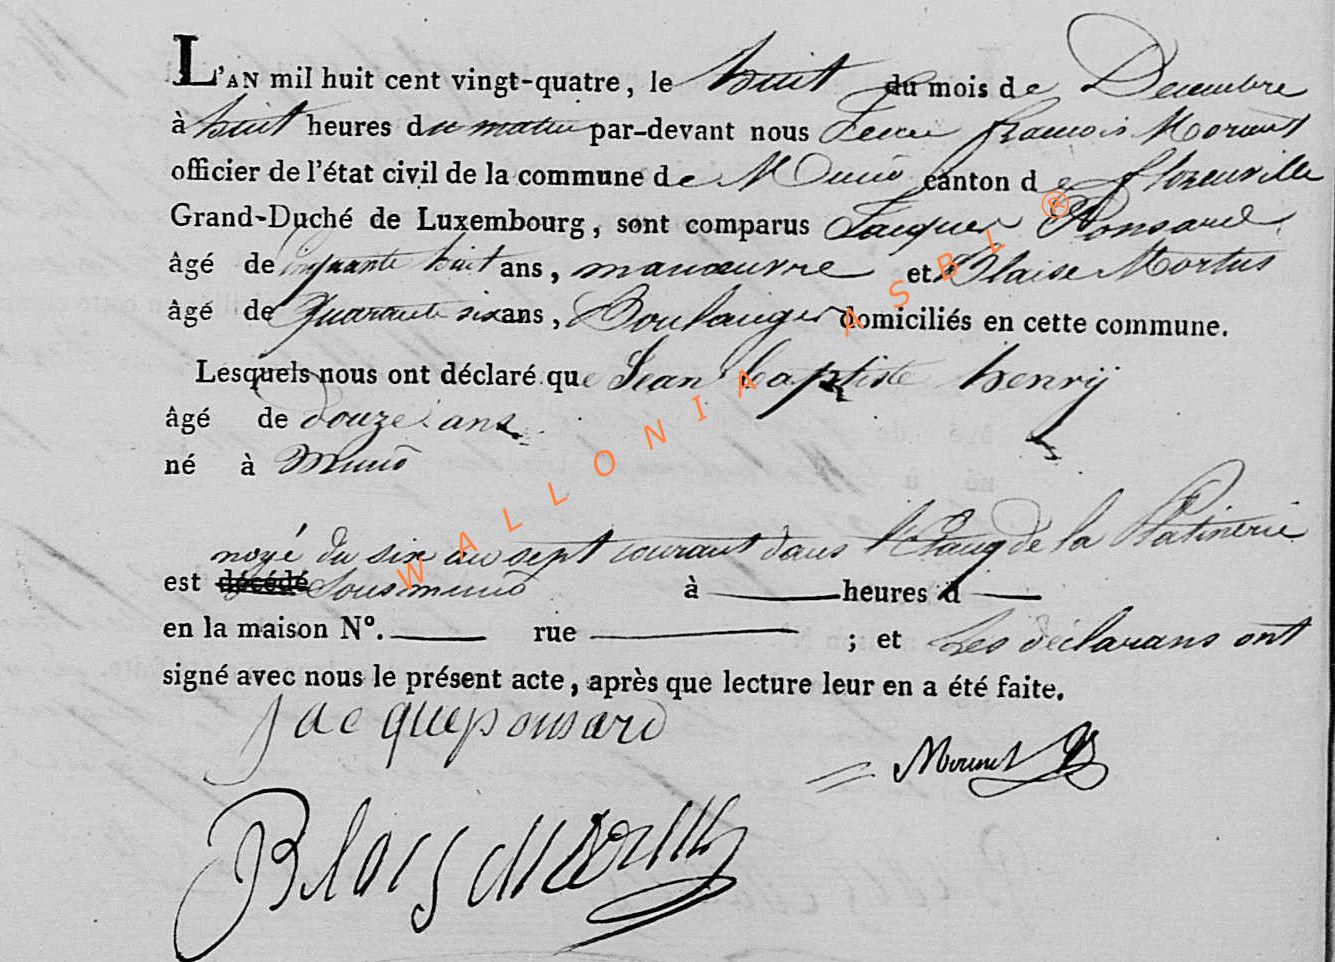 L'AN mil huit cent vingt-quatre, le huit du mois de Decembre
à huit heures du matin par-devant nous francois
officier de l'état civil de la commune de Muno canton de florenville
Grand-Duché de Luxembourg, sont comparus Jacques Ponsard
âgé de cinquante huit ans, manœuvre et Blaise Mortus
âgé de quarante six ans, Boulanger domiciliés en cette commune.
Lesquels nous ont déclaré que Jean baptiste henry
âgé de douze ans
né à Muno
noyé du six au sept courant dans l'Etang de la Platinerie
est décédé sous muno à heures d
en la maison N°. rue ; et Les déclarans ont
signé avec nous le présent acte, après que lecture leur en a été faite.
Jacque ponsard
WALLONIA ASBL ®